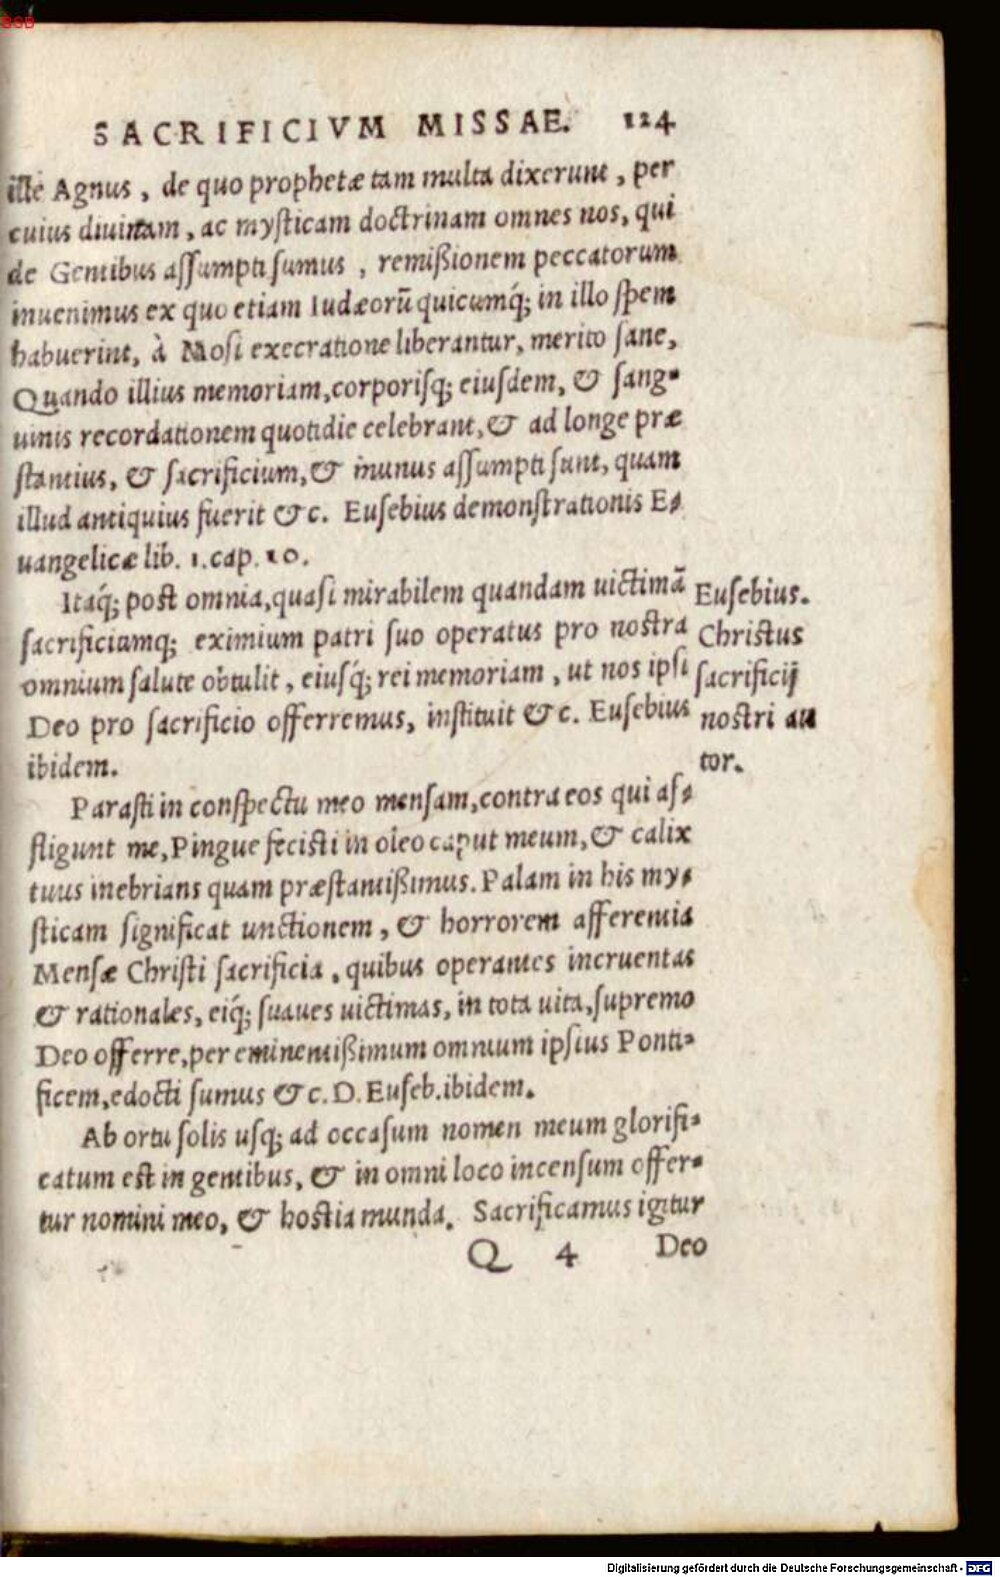 BSB
SACRIFICIVM MISSAE. 124
ille Agnus, de quo prophetæ tam multa dixerunt, per
cuius diuinam, ac mysticam doctrinam omnes nos, qui
de Gentibus assumpti sumus, remißionem peccatorum
inuenimus ex quo etiam Iudæorũ quicumq́; in illo spem
habuerint, à Mosi execratione liberantur, merito sane,
Quando illius memoriam, corporisq; eiusdem, & sang-
uinis recordationem quotidie celebrant, & ad longe præ
stantius, & sacrificium, & munus assumpti sunt, quam
illud antiquius fuerit &c. Eusebius demonstrationis E-
uangelicæ lib. 1. cap. 10.
Itaq́; post omnia, quasi mirabilem quandam uictimã
sacrificiumq; eximium patri suo operatus pro nostra
omnium salute obtulit, eiusq́; rei memoriam, ut nos ipsi
Deo pro sacrificio offerremus, instituit &c. Eusebius
ibidem.
Eusebius.
Christus
sacrificij
nostri au
tor.
Parasti in conspectu meo mensam, contra eos qui af-
fligunt me, Pingue fecisti in oleo caput meum, & calix
tuus inebrians quam præstantißimus. Palam in his my-
sticam significat unctionem, & horrorem afferentia
Mensæ Christi sacrificia, quibus operantes incruentas
& rationales, eiq́; suaues uictimas, in tota uita, supremo
Deo offerre, per eminentißimum omnium ipsius Ponti-
ficem, edocti sumus &c. D. Euseb. ibidem.
Ab ortu solis usq; ad occasum nomen meum glorifi-
catum est in gentibus, & in omni loco incensum offer-
tur nomini meo, & hostia munda. Sacrificamus igitur
Q 4 Deo
Digitalisierung gefördert durch die Deutsche Forschungsgemeinschaft - DFG